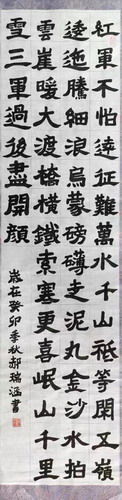 紅軍不怕遠征難萬水千山祗等閑五嶺
逶迤騰細浪烏蒙磅礴走泥丸金沙水拍
雲崖暖大渡橋橫鐵索寒更喜岷山千里
雪三軍過後盡開顔
歲在癸卯季秋郝瑞涵書